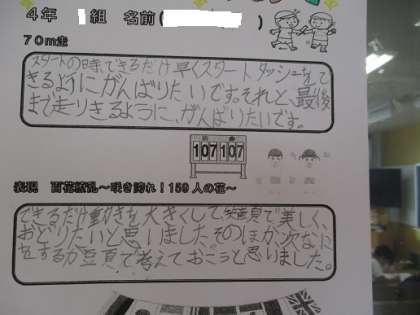 4年 1組 名前( )
70m走
スタートの時できるだけ早くスタートダッシュをして
きるようにがんばりたいです。それと、最後
まで走りきるように、がんばりたいです。
107 107
表現 百花繚乱～咲き誇れ!159人の花～
できるだけ動きを大きくして笑顔で美しく、
おどりたいと思いました。そのほか、次なに
をするか頭で考えておこうと思いました。